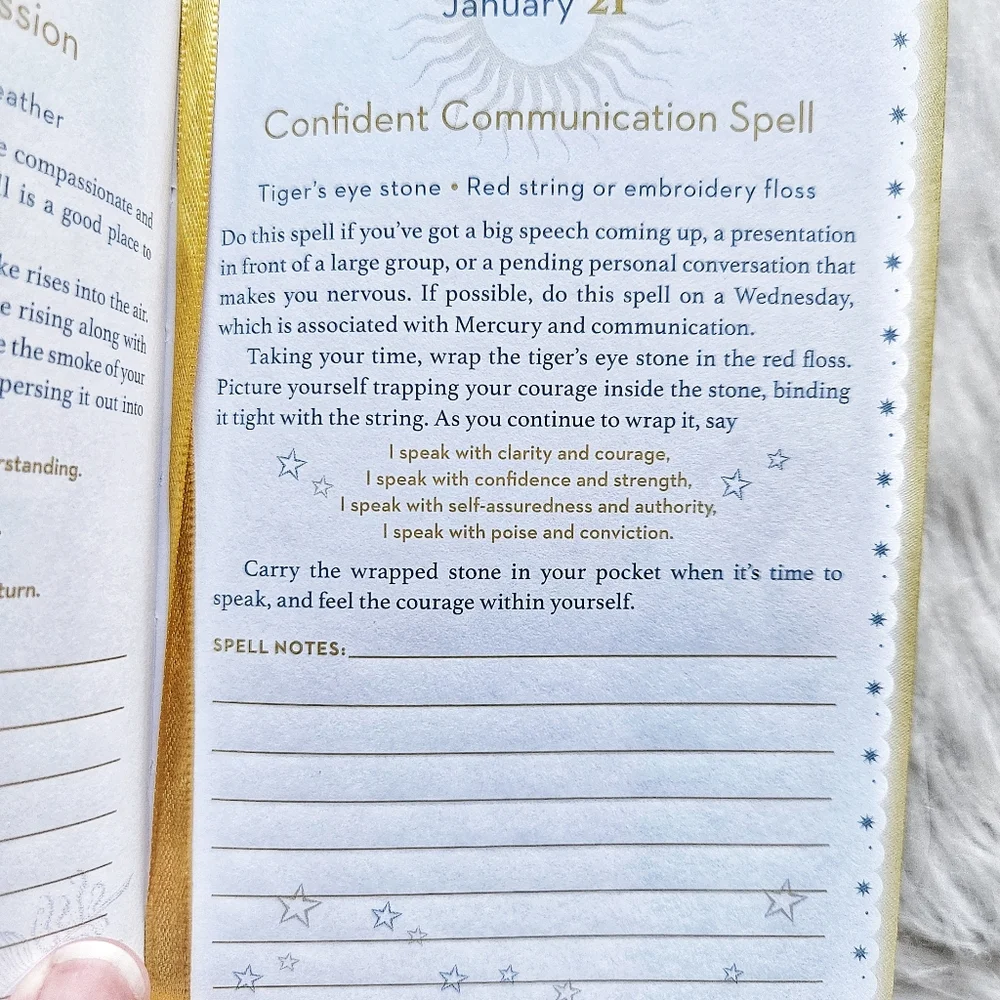 ssion
eather
e compassionate and
ll is a good place to
ke rises into the air.
e rising along with
e the smoke of your
persing it out into
rstanding.
turn.
January 21
Confident Communication Spell
Tiger's eye stone • Red string or embroidery floss
Do this spell if you've got a big speech coming up, a presentation
in front of a large group, or a pending personal conversation that
makes you nervous. If possible, do this spell on a Wednesday,
which is associated with Mercury and communication.
Taking your time, wrap the tiger's eye stone in the red floss.
Picture yourself trapping your courage inside the stone, binding
it tight with the string. As you continue to wrap it, say
I speak with clarity and courage,
I speak with confidence and strength,
I speak with self-assuredness and authority,
I speak with poise and conviction.
Carry the wrapped stone in your pocket when it's time to
speak, and feel the courage within yourself.
SPELL NOTES: